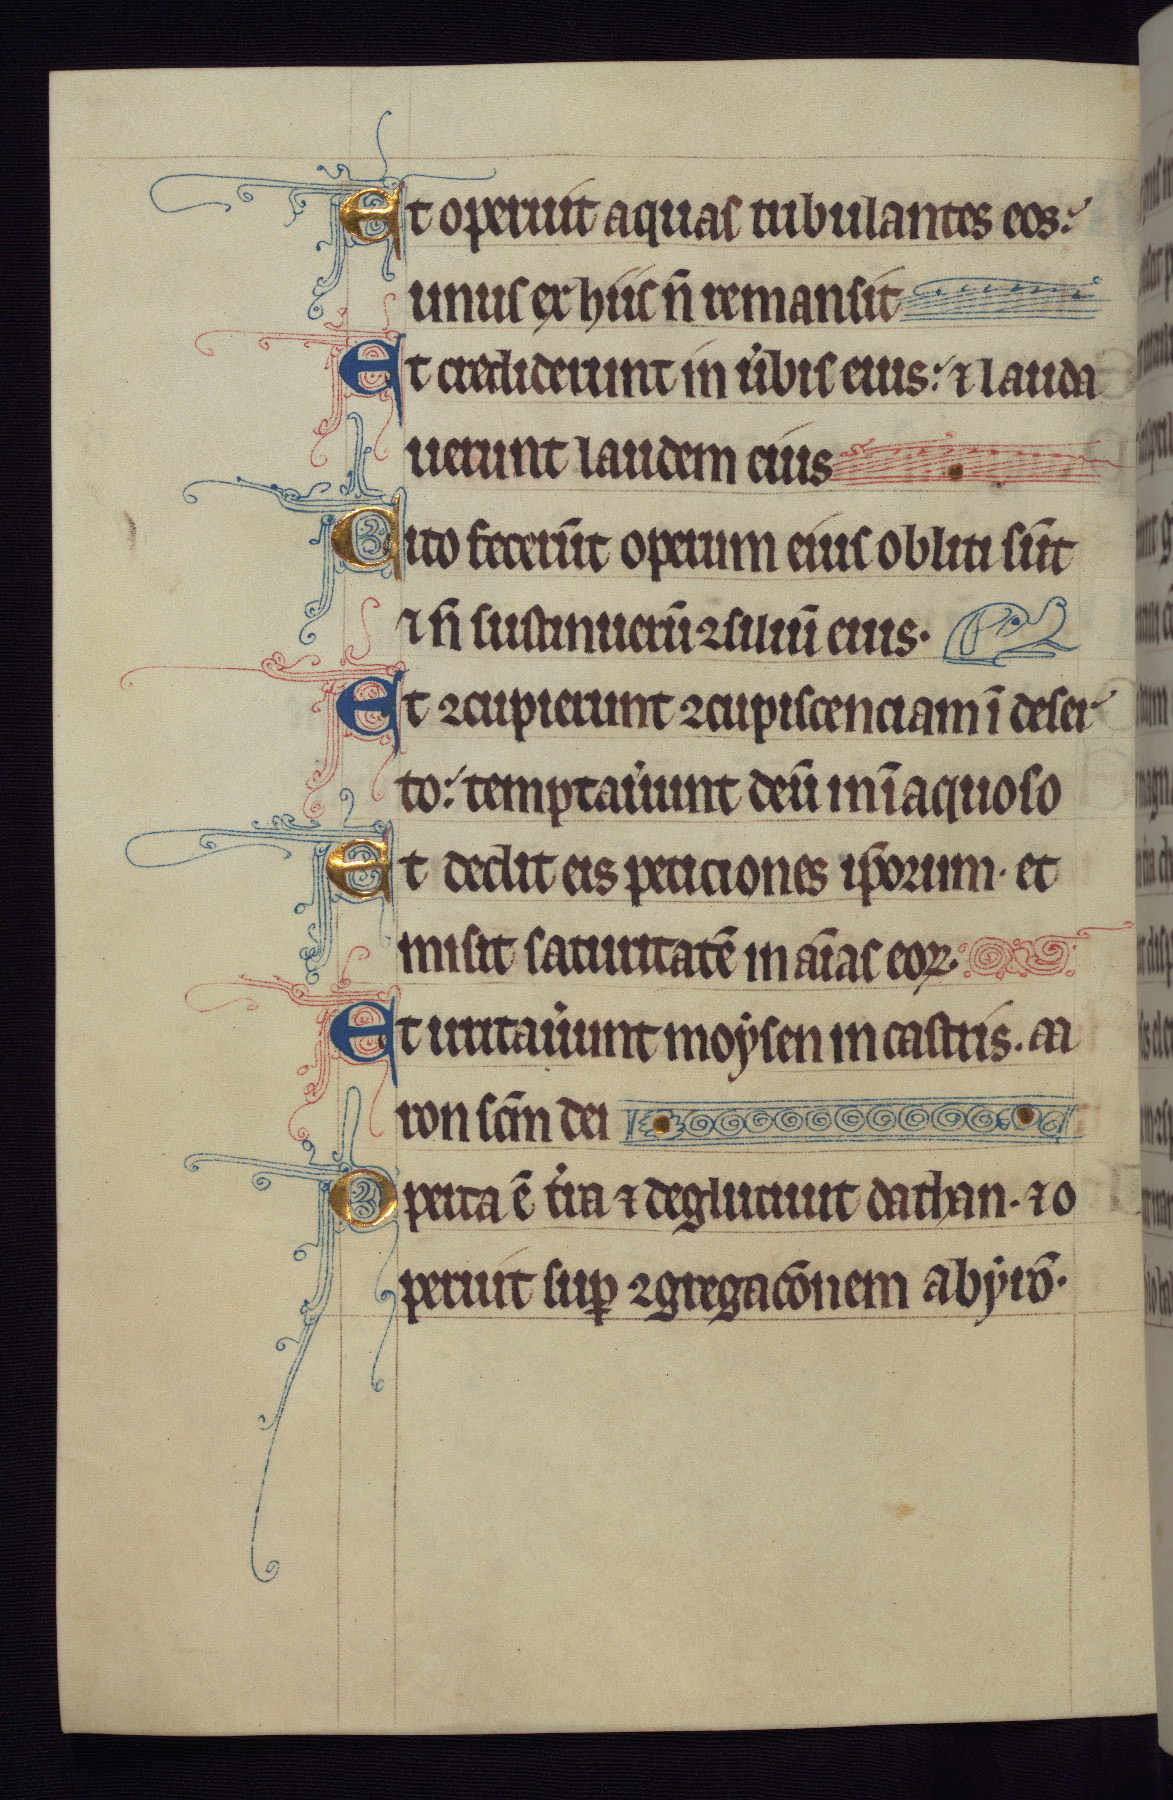 Et operuit aquas tribulantes eos:
unus ex hiis n̄ remansit
Et crediderunt in u̇bis eius: ⁊ lauda
uerunt laudem eius
Cito fecerūt operum eius obliti sūt
⁊ n̄ sustinuerū ꝯsiliū eius.
Et ꝯcupierunt ꝯcupiscenciam ī deser
to: temptau̇unt deū in īaquoso
Et dedit eis peticiones ip̄orum. et
misit saturitatē in aīas eoꝝ.
Et irritau̇unt moẏsen in castris. aa
ron sc̄m dei
Operta ē t̓ra ⁊ deglutiuit dathan. ⁊ o
peruit suꝑ ꝯgregac̄onem abẏrō.